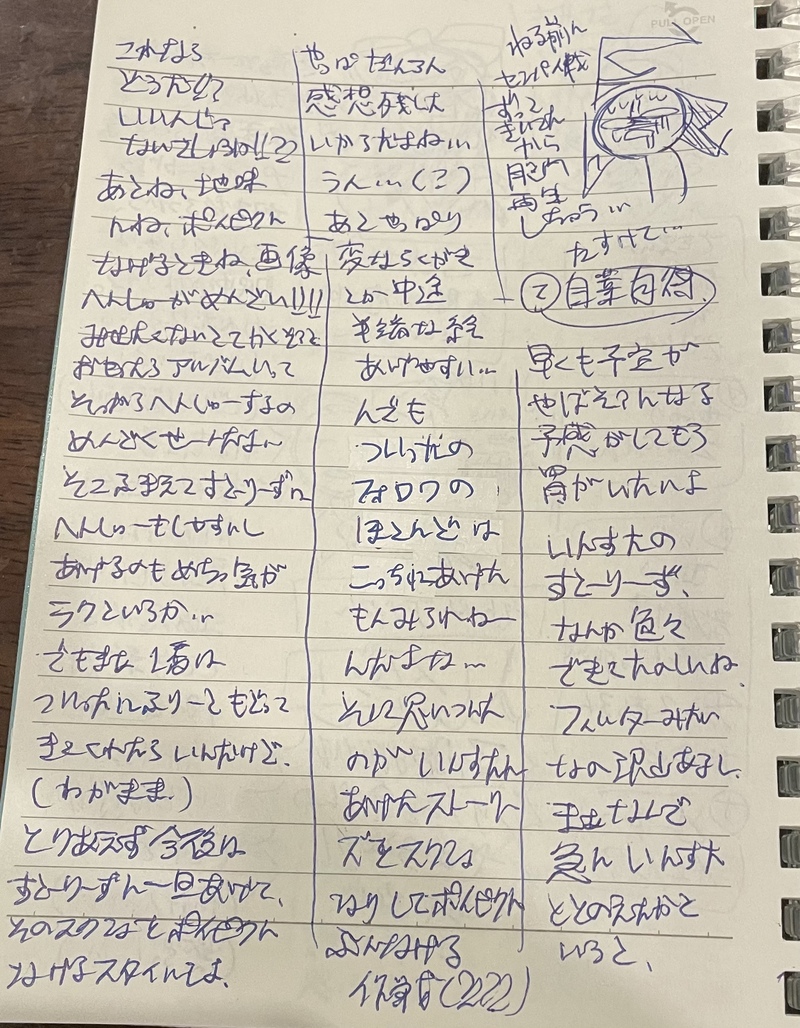 ねる前に
センパイ戦
ずっと
きいてた
から
脳内
再生
しちゃう…
たすけて…
自業自得
早くも予定が
やばそうんなる
予感がしてもう
胃がいたいよ
いんすたの
すとーりーず、
なんか色々
できてたのしいね
フィルターみたい
なの沢山あるし、
まぁなんで
急に いんすた
ととのえたかと
いうと、
やっぱ
感想残した
いからだよね…
うん…
あとやっぱり
変ならくがき
とか中途
半端な絵
あげやすい…
んでも
ついったの
フォロワの
ほとんどは
こっちにあげた
もんみれねー
んだよな…
そして思いついた
のが いんすたに
あげたストーリー
ズをスクショ
なりしてポイピクに
ぶんなげる
作業(???)
これなら
どうだ!?
いいんじゃ
ないでしょうね!!??
あとね、地味
にね、ポイピクに
なげるときね、画像
へんしゅーがめんどい!!!!
アルバムいって
そっからへんしゅーするの
めんどくせーんだよ…
そこふまえてすとーりーずは
へんしゅーもしやすいし
あげるのもめちゃ気が
ラクというか…
でもまた1番は
ついったにふりーともどって
きてくれたらいんだけど、
(わがまま)
とりあえず今後は
すとーりーずに一旦あげて、
そのスクショをポイピクに
なげるスタイルでよ、
PULL OPEN